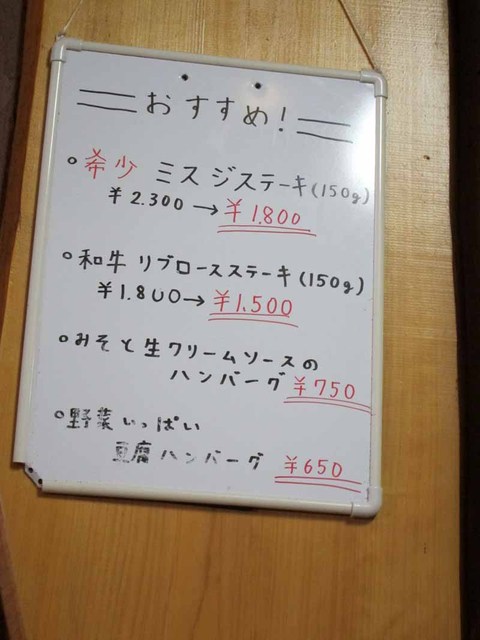 おすすめ!
。希少 ミスジステーキ(150g)
¥2.300→¥1.800
。和牛 リブロースステーキ(150g)
¥1.800→¥1.500
。みそと生クリームソースの
ハンバーグ ¥750
。野菜いっぱい
豆腐ハンバーグ ¥650